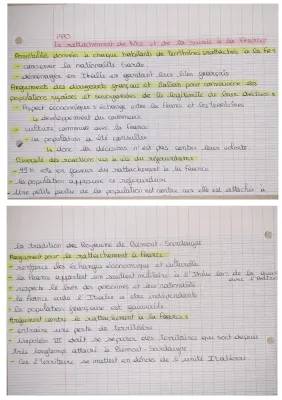 Le rattachement de Nice et de la Savoie à la France
Possibilités données à chaque habitant de territoires rattachés à la Fr
- conserver la nationalité Sarde
- déménager en Italie en gardant leur bien français
Arguments des dirigeants français et italien pour convaincre des
populations niçoises et savoyardes de la légitimité de leurs
- Aspect économique : échange entre la France et les territoires
↳ développement du commerce
- culture commune avec la France
- la population a été consultée
↳ donc les décisions n'est pas contre leur volonté
Résultats des réactions vis à vis du référendum
- 99% été en faveur du rattachement à la France
- la population approuve ce référendum
- Une petite partie de la population est contre car elle est attachée à
la tradition des Royaume de Piémont-Sardaigne
Argument pour le rattachement à France
- renforce des échange économique et culturelle
- la France apportait son soutient militaire à l'Italie lors de la guerre
- respecte le libre des personnes et leur nationalité
- la France aide l'Italie a être indépendante
- la population française est
Argument contre le rattachement à la France
- entraine une perte de territoires
- Napoléon III doit se séparer des territoires qui sont depuis
très longtemps attaché à Piémont-Sardaigne
- Ces territoire se mettent en dehors de l'unité Italienne